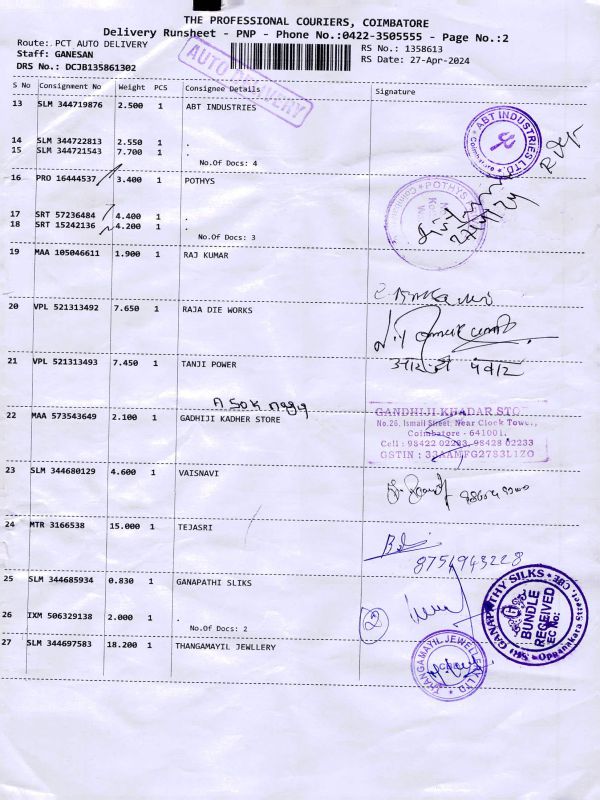 THE PROFESSIONAL COURIERS, COIMBATORE
Delivery Runsheet - PNP - Phone No.:0422-3505555 - Page No.:2
Route: PCT AUTO DELIVERY
RS No.: 1358613
Staff: GANESAN
RS Date: 27-Apr-2024
DRS No.: DCJB135861302
AUTO DELIVERY
S No Consignment No Weight PCS Consignee Details Signature
13 SLM 344719876 2.500 1 ABT INDUSTRIES
ABT INDUSTRIES LTD. Coimbatore
14 SLM 344722813 2.550 1 .
15 SLM 344721543 7.700 1 .
No.Of Docs: 4
16 PRO 16444537 3.400 1 POTHYS
POTHYS
27/4/24
17 SRT 57236484 4.400 1 .
18 SRT 15242136 4.200 1 .
No.Of Docs: 3
19 MAA 105046611 1.900 1 RAJ KUMAR
20 VPL 521313492 7.650 1 RAJA DIE WORKS
21 VPL 521313493 7.450 1 TANJI POWER
A SOK
22 MAA 573543649 2.100 1 GADHIJI KADHER STORE
GANDHIJI KHADAR STO
No.26, Ismail Street, Near Clock Tower,
Coimbatore - 641001.
Cell : 98422 02233, 98428 02233
GSTIN : 33AAMFG2783L1ZO
23 SLM 344680129 4.600 1 VAISNAVI
24 MTR 3166538 15.000 1 TEJASRI
8754943228
25 SLM 344685934 0.830 1 GANAPATHI SLIKS
SRI GANAPATHY SILKS CBE
Oppanakara Street,
BUNDLE
RECEIVED
EC No:
26 IXM 506329138 2.000 1 .
No.Of Docs: 2
2
27 SLM 344697583 18.200 1 THANGAMAYIL JEWLLERY
THANGAMAYIL JEWELLERY LTD